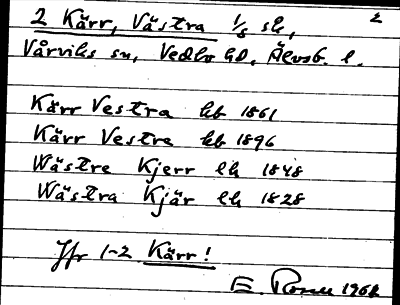 2
2 Kärr, Västra 1/8 sk,
Vårviks sn, Vedbo hd, Älvsb. l.
Kärr Vestra hb 1861
Kärr Vestre hb 1896
Wästre Kjerr lh 1848
Wästra Kjär lh 1828
Jfr 1-2 Kärr!
E